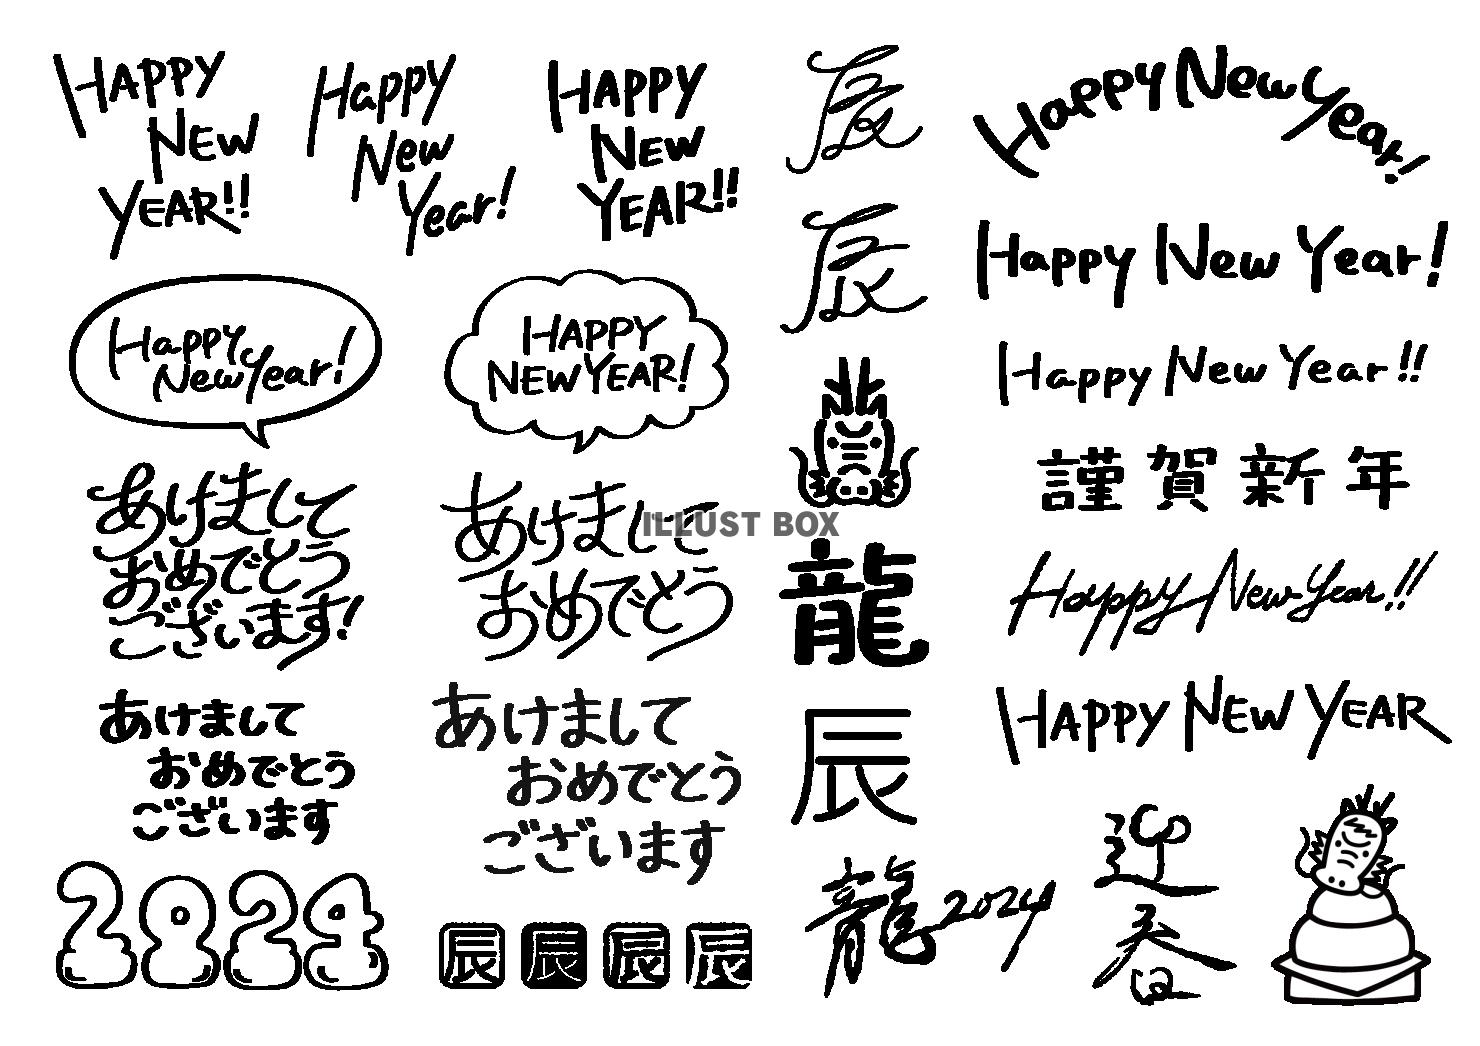 HAPPY
NEW
YEAR!!
Happy
New
Year!
HAPPY
NEW
YEAR!!
辰
Happy New Year!
辰
Happy New Year!
Happy
New Year!
HAPPY
NEW YEAR!
Happy New Year!!
謹賀新年
あけまして
おめでとう
ございます!
あけまして
おめでとう
ILLUST BOX
龍
Happy New Year!!
あけまして
おめでとう
ございます
あけまして
おめでとう
ございます
辰
HAPPY NEW YEAR
2024
辰 辰 辰 辰
龍 2024
迎
春